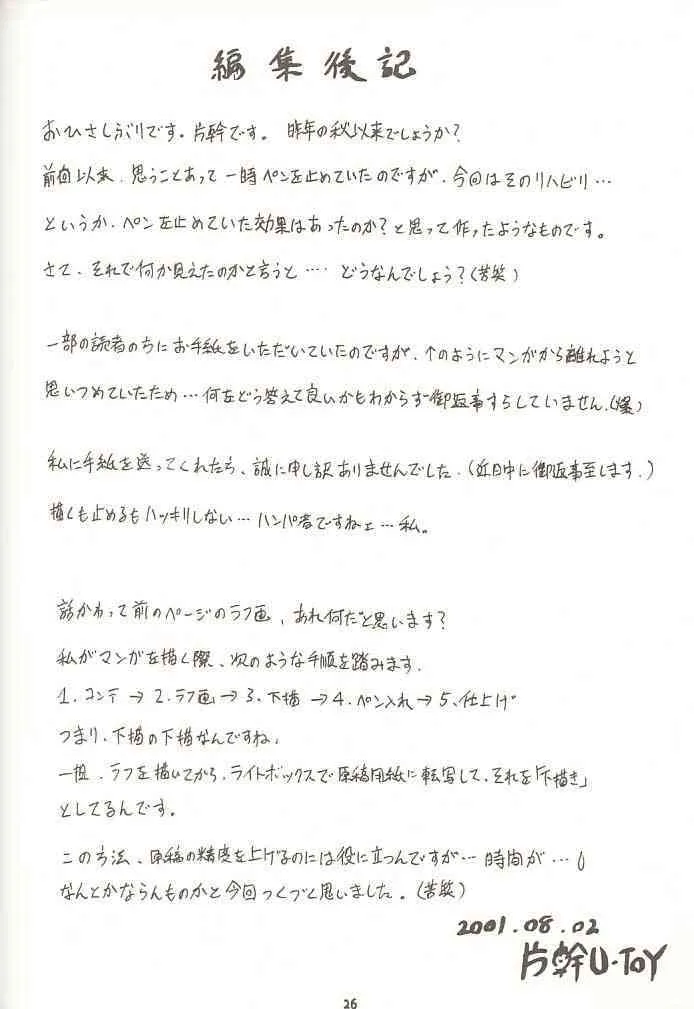 編集後記
おひさしぶりです。片幹です。昨年の秋以来でしょうか?
前回以来、思うことあって一時ペンを止めていたのですが、今回はそのリハビリ…
というか、ペンを止めていた効果はあったのか?と思って作ったようなものです。
さて、それで何か見えたのかと言うと…どうなんでしょう?(苦笑)
一部の読者のちにお手紙をいただいていたのですが、↑のようにマンガから離れようと
思いつめていたため…何をどう答えて良いかもわからず御返事すらしていません。(爆)
私に手紙を送ってくれたら、誠に申し訳ありませんでした。(近日中に御返事至します。)
描くも止めるもハッキリしない…ハンパ者ですねェ…私。
話かわって前のページのラフ画、あれ何だと思います?
私がマンガを描く際、次のような手順を踏みます。
1.コンテ→2.ラフ画→3.下描→4.ペン入れ→5.仕上げ
つまり、下描の下描なんですね。
一担、ラフを描いてから、ライトボックスで原稿用紙に転写して、それを「下描き」
としてるんです。
この方法、原稿の精度を上げるのには役に立つんですが…時間が…
なんとかならんものかと今回つくづくと思いました。(苦笑)
2001.08.02
片幹U・ToY
26